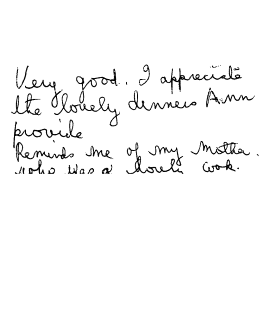 Very good. I appreciate
the lovely dinners Ann
provide
Reminds me of my Mother.
who was a lovely cook.